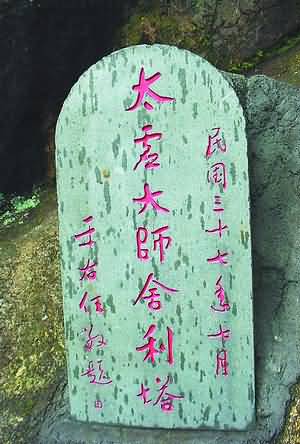 民国三十七年七月
太虚大師舍利塔
于右任敬題